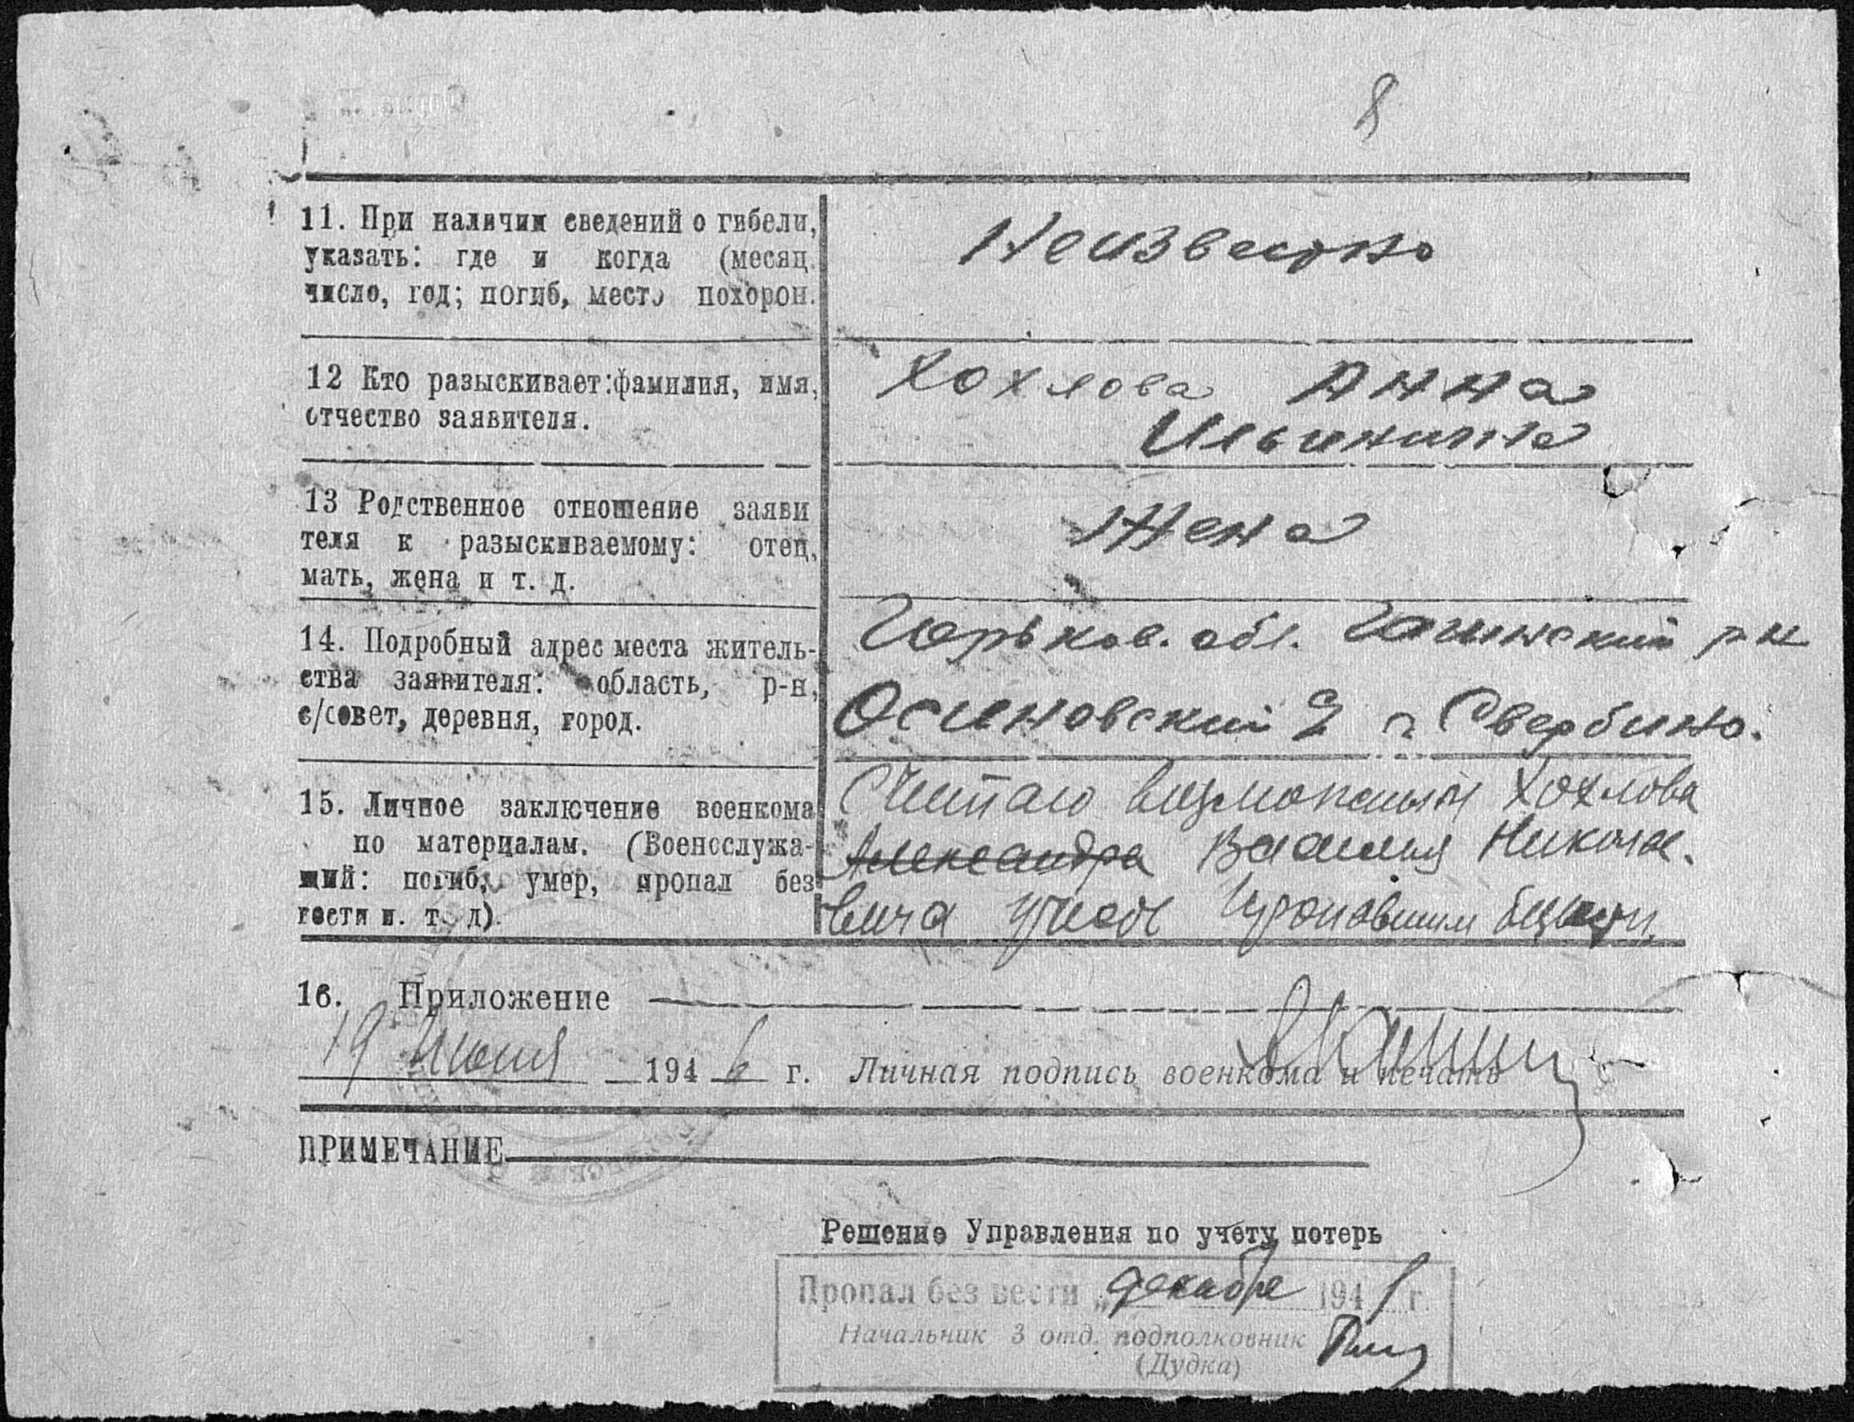 8
11. При наличии сведений о гибели,
указать: где и когда (месяц.
число, год; погиб, место похорон.
Неизвестно
12 Кто разыскивает: фамилия, имя,
отчество заявителя.
Хохлова Анна
Ильинична
13 Родственное отношение заяви
теля к разыскиваемому: отец,
мать, жена и т. д.
Жена
14. Подробный адрес места житель-
ства заявителя: область, р-н,
с/совет, деревня, город.
Горьков. обл. р-н
Осиновский Свербино.
15. Личное заключение военкома
по материалам. (Военослужа-
щий: погиб, умер, пропал без
вести и. т. д).
Считаю возможным Хохлова
Александра Василия Никола-
евича учесть пропавшим без вести.
16. Приложение
19 Июня 1946 г. Личная подпись военкома и печать
ПРИМЕЧАНИЕ
Решение Управления по учету потерь
Пропал без вести „декабре 1941 г.
Начальник 3 отд. подполковник
(Дудка)